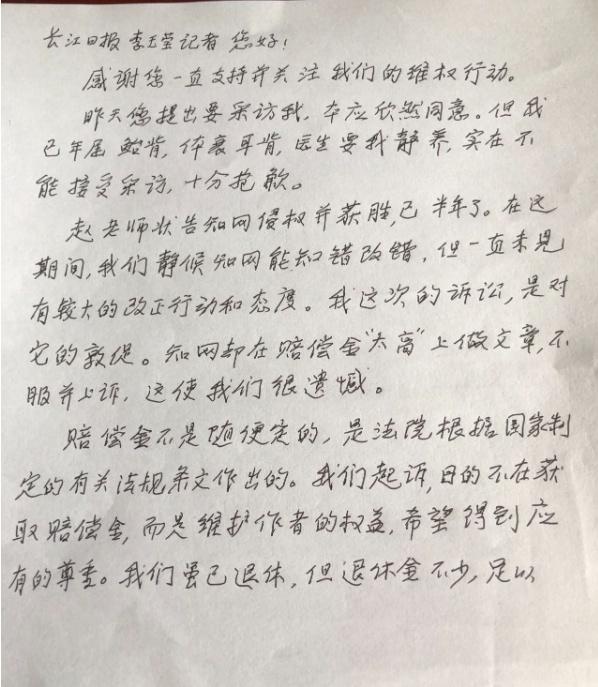 长江日报 李玉莹记者 您好!
感谢您一直支持并关注我们的维权行动。
昨天您提出要采访我,本应欣然同意。但我
已年届鲐背,体衰耳背,医生要我静养,实在不
能接受采访,十分抱歉。
赵老师状告知网侵权并获胜,已半年了。在这
期间,我们静候知网能知错改错,但一直未见
有较大的改正行动和态度。我这次的诉讼,是对
它的敦促。知网却在赔偿金“太高”上做文章,不
服并上诉,这使我们很遗憾。
赔偿金不是随便定的,是法院根据国家制
定的有关法规条文作出的。我们起诉,目的不在获
取赔偿金,而是维护作者的权益,希望得到应
有的尊重。我们虽已退休,但退休金不少,足以